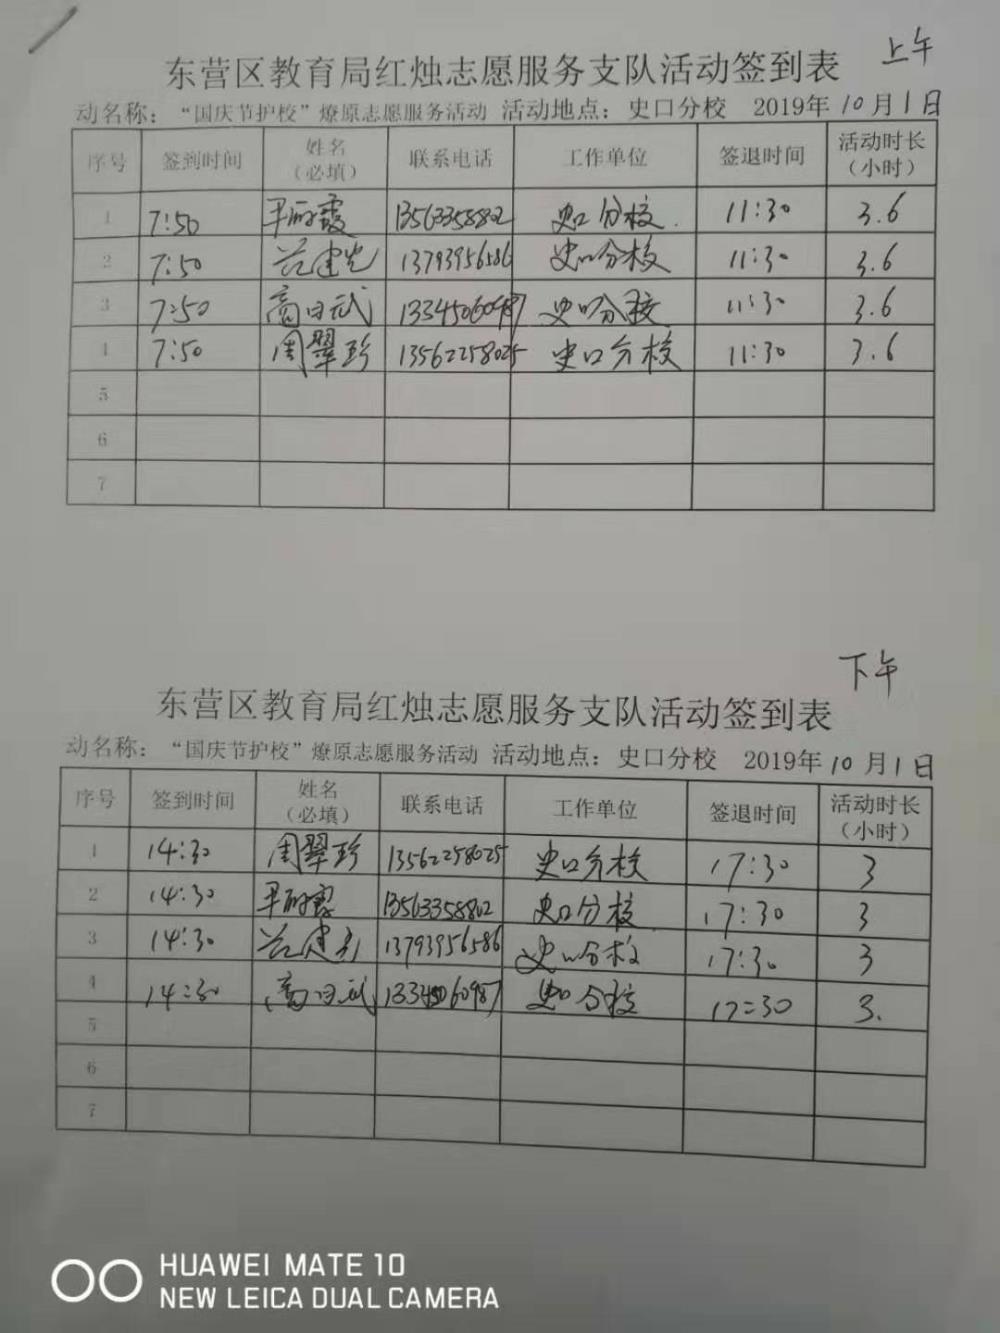 上午
东营区教育局红烛志愿服务支队活动签到表
动名称：“国庆节护校”燎原志愿服务活动 活动地点：史口分校 2019年10月1日
序号 签到时间 姓名（必填） 联系电话 工作单位 签退时间 活动时长（小时）
1 7:50 13563358802 史口分校 11:30 3.6
2 7:50 13793956586 史口分校 11:30 3.6
3 7:50 史口分校 11:30 3.6
4 7:50 周翠珍 13562258025 史口分校 11:30 3.6
5
6
7
下午
东营区教育局红烛志愿服务支队活动签到表
动名称：“国庆节护校”燎原志愿服务活动 活动地点：史口分校 2019年10月1日
序号 签到时间 姓名（必填） 联系电话 工作单位 签退时间 活动时长（小时）
1 14:30 周翠珍 13562258025 史口分校 17:30 3
2 14:30 13563358802 史口分校 17:30 3
3 14:30 13793956586 史口分校 17:30 3
4 14:30 史口分校 17:30 3.
5
6
7
HUAWEI MATE 10
NEW LEICA DUAL CAMERA